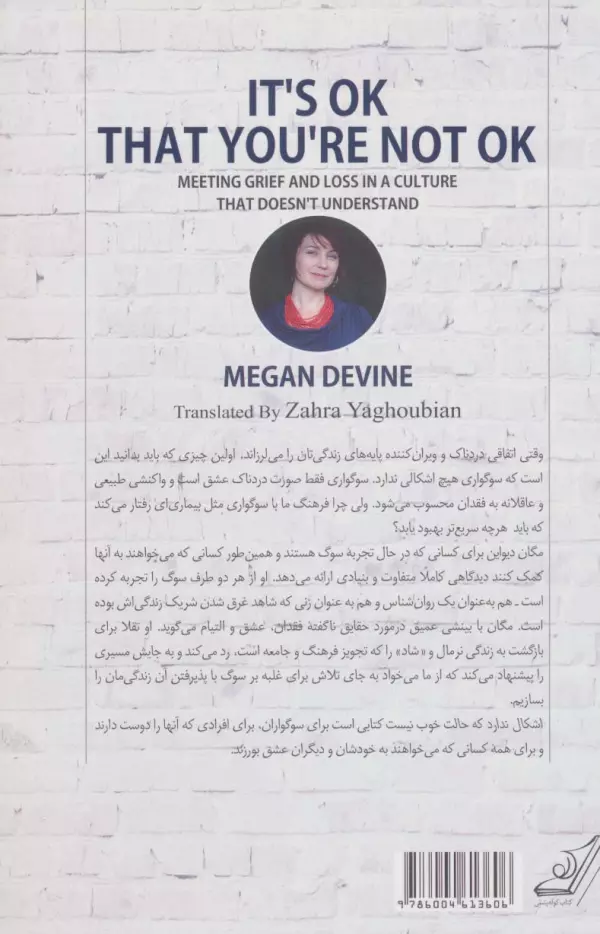 IT'S OK
THAT YOU'RE NOT OK
MEETING GRIEF AND LOSS IN A CULTURE
THAT DOESN'T UNDERSTAND
MEGAN DEVINE
Translated By Zahra Yaghoubian
وقتی اتفاقی دردناک و ویران‌کننده پایه‌های زندگی‌تان را می‌لرزاند، اولین چیزی که باید بدانید این
است که سوگواری هیچ اشکالی ندارد. سوگواری فقط صورت دردناک عشق است و واکنشی طبیعی
و عاقلانه به فقدان محسوب می‌شود. ولی چرا فرهنگ ما با سوگواری مثل بیماری‌ای رفتار می‌کند
که باید هرچه سریع‌تر بهبود یابد؟
مگان دیواین برای کسانی که در حال تجربه سوگ هستند و همین‌طور کسانی که می‌خواهند به آنها
کمک کنند دیدگاهی کاملاً متفاوت و بنیادی ارائه می‌دهد. او از هر دو طرف سوگ را تجربه کرده
است ـ هم به‌عنوان یک روان‌شناس و هم به عنوان زنی که شاهد غرق شدن شریک زندگی‌اش بوده
است. مگان با بینشی عمیق درمورد حقایق ناگفتهٔ فقدان، عشق و التیام می‌گوید. او تقلا برای
بازگشت به زندگی نرمال و «شاد» را که تجویز فرهنگ و جامعه است، رد می‌کند و به جایش مسیری
را پیشنهاد می‌کند که از ما می‌خواد به جای تلاش برای غلبه بر سوگ با پذیرفتن آن زندگی‌مان را
بسازیم.
اشکال ندارد که حالت خوب نیست کتابی است برای سوگواران، برای افرادی که آنها را دوست دارند
و برای همه کسانی که می‌خواهند به خودشان و دیگران عشق بورزند.
9 786004 613606
کتاب کوله‌پشتی